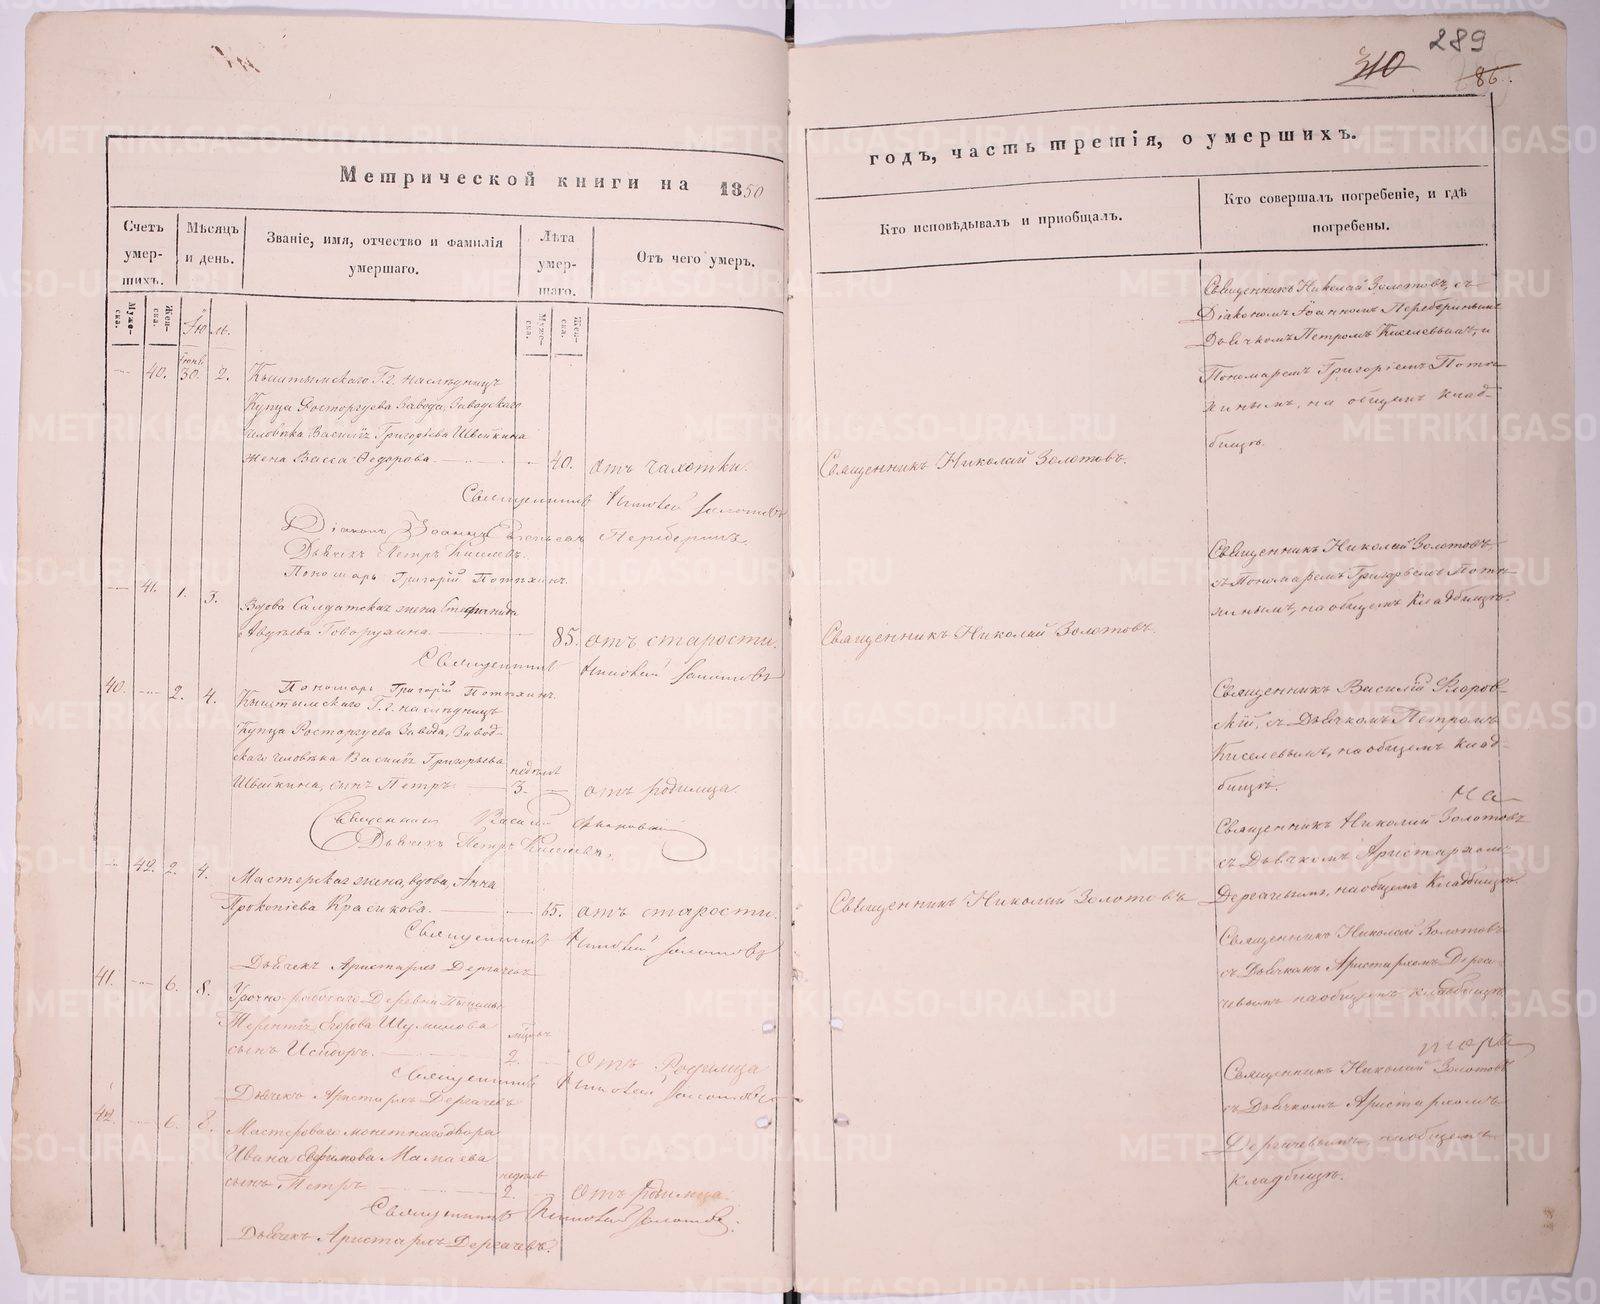 289
310
86.
Метрической книги на 1850
годъ, часть третія, о умершихъ.
Счетъ умер-шихъ.
Мѣсяцъ и день.
Званіе, имя, отчество и фамилія умершаго.
Лѣта умер-шаго.
Отъ чего умеръ.
Кто исповѣдывалъ и пріобщалъ.
Кто совершалъ погребеніе, и гдѣ погребены.
Муже-ска.
Жен-ска.
Муже-ска.
Жен-ска.
Июль.
40. 30. 2. Кыштымскаго Г.г. наслѣдницъ
Купца Расторгуева Завода, Заводскаго
человѣка Василія Григорьева Швейкина
жена Васса Ѳедорова. 40. отъ чахотки.
Священникъ Николай Золотовъ.
Священникъ Николай Золотовъ, съ
Діакономъ Іоанномъ Переберинымъ
Дьячкомъ Петромъ Киселевымъ, и
Пономаремъ Григоріемъ Поти-
хинымъ, на общемъ клад-
бищѣ.
Священникъ Николай Золотовъ
Діаконъ Іоаннъ Переберинъ
Дьячекъ Петръ Киселевъ.
Пономарь Григорій Потихинъ.
41. 1. 3. Вдова Салдатская жена Стефанида
Авдѣева Говорухина. 85. отъ старости.
Священникъ Николай Золотовъ.
Священникъ Николай Золотовъ,
съ Пономаремъ Григорьемъ Поти-
хинымъ, на общемъ Кладбищѣ.
Священникъ Николай Золотовъ
Пономарь Григорій Потихинъ.
40. 2. 4. Кыштымскаго Г.г. наслѣдницъ
Купца Расторгуева Завода, Завод-
скаго человѣка Василія Григорьева
Швейкина, сынъ Петръ. недѣль 3. отъ родимца.
Священникъ Василій Флоров-
скій, съ Дьячкомъ Петромъ
Киселевымъ, на общемъ клад-
бищѣ.
Священникъ Василій Флоровскій
Дьячекъ Петръ Киселевъ.
42. 2. 4. Мастерская жена, вдова, Анна
Прокопіева Красикова. 65. отъ старости.
Священникъ Николай Золотовъ
на
Священникъ Николай Золотовъ
съ Дьячкомъ Аристархомъ
Дергачевымъ, на общемъ Кладбищѣ.
Священникъ Николай Золотовъ
Дьячекъ Аристархъ Дергачевъ
41. 6. 8. Урочно-рабочаго Деревни
Терентія Егорова Шумилова
сынъ Исидоръ. мѣсяцъ 2. Отъ Родимца
Священникъ Николай Золотовъ
съ Дьячкомъ Аристархомъ Дерга-
чевымъ на общемъ кладбищѣ.
Священникъ Николай Золотовъ
Дьячекъ Аристархъ Дергачевъ
42. 6. 8. Мастероваго монетнаго двора
Ивана Ефимова Мамаева
сынъ Петръ недѣль 2. Отъ родимца.
Священникъ Николай Золотовъ
съ Дьячкомъ Аристархомъ
Дергачевымъ, на общемъ
кладбищѣ.
Священникъ Николай Золотовъ.
Дьячекъ Аристархъ Дергачевъ.
METRIKI.GASO-URAL.RU